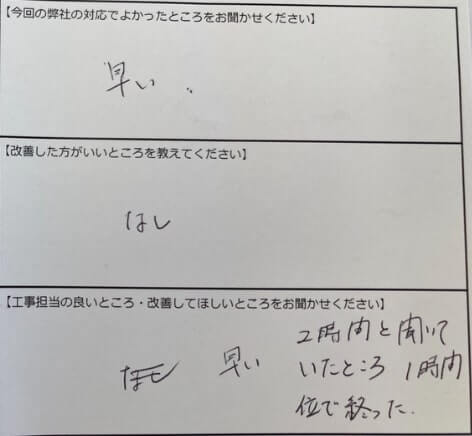 【今回の弊社の対応でよかったところをお聞かせください】
早い.
【改善した方がいいところを教えてください】
なし
【工事担当の良いところ・改善してほしいところをお聞かせください】
早い
2時間と聞いて
いたところ 1時間
位で終った.